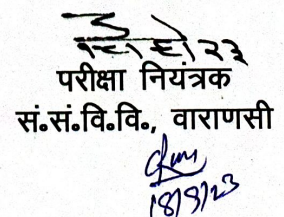 परीक्षा नियंत्रक
सं॰सं॰वि॰वि॰, वाराणसी
18/9/23